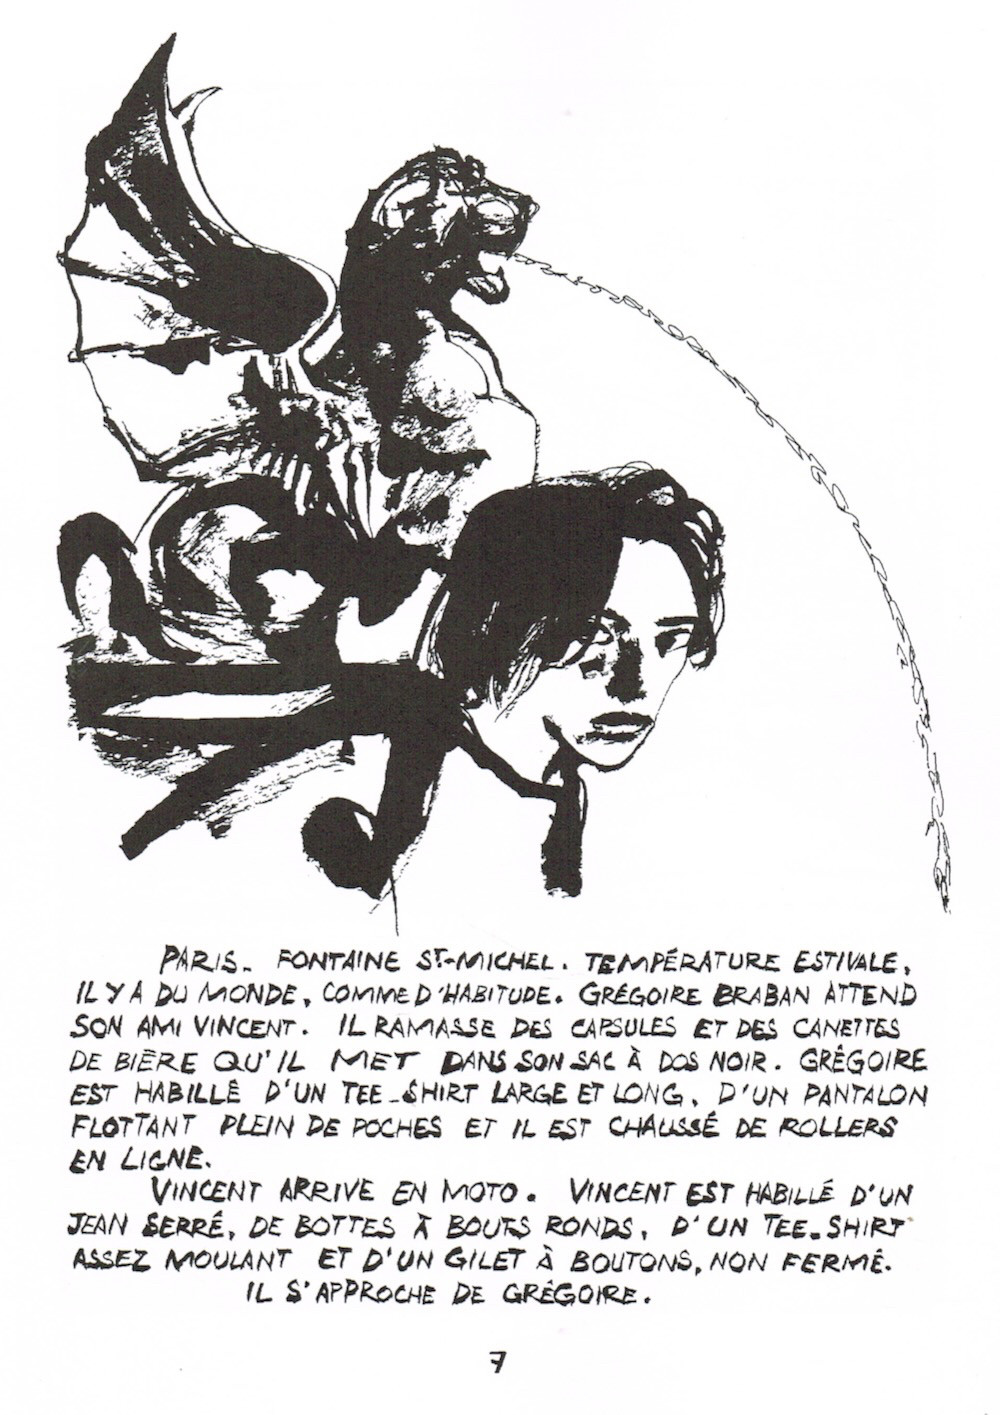 PARIS. FONTAINE ST-MICHEL. TEMPÉRATURE ESTIVALE,
IL Y A DU MONDE, COMME D'HABITUDE. GRÉGOIRE BRABAN ATTEND
SON AMI VINCENT. IL RAMASSE DES CAPSULES ET DES CANETTES
DE BIÈRE QU'IL MET DANS SON SAC À DOS NOIR. GRÉGOIRE
EST HABILLÉ D'UN TEE-SHIRT LARGE ET LONG, D'UN PANTALON
FLOTTANT PLEIN DE POCHES ET IL EST CHAUSSÉ DE ROLLERS
EN LIGNE.
VINCENT ARRIVE EN MOTO. VINCENT EST HABILLÉ D'UN
JEAN SERRÉ, DE BOTTES À BOUTS RONDS, D'UN TEE-SHIRT
ASSEZ MOULANT ET D'UN GILET À BOUTONS, NON FERMÉ.
IL S'APPROCHE DE GRÉGOIRE.
7